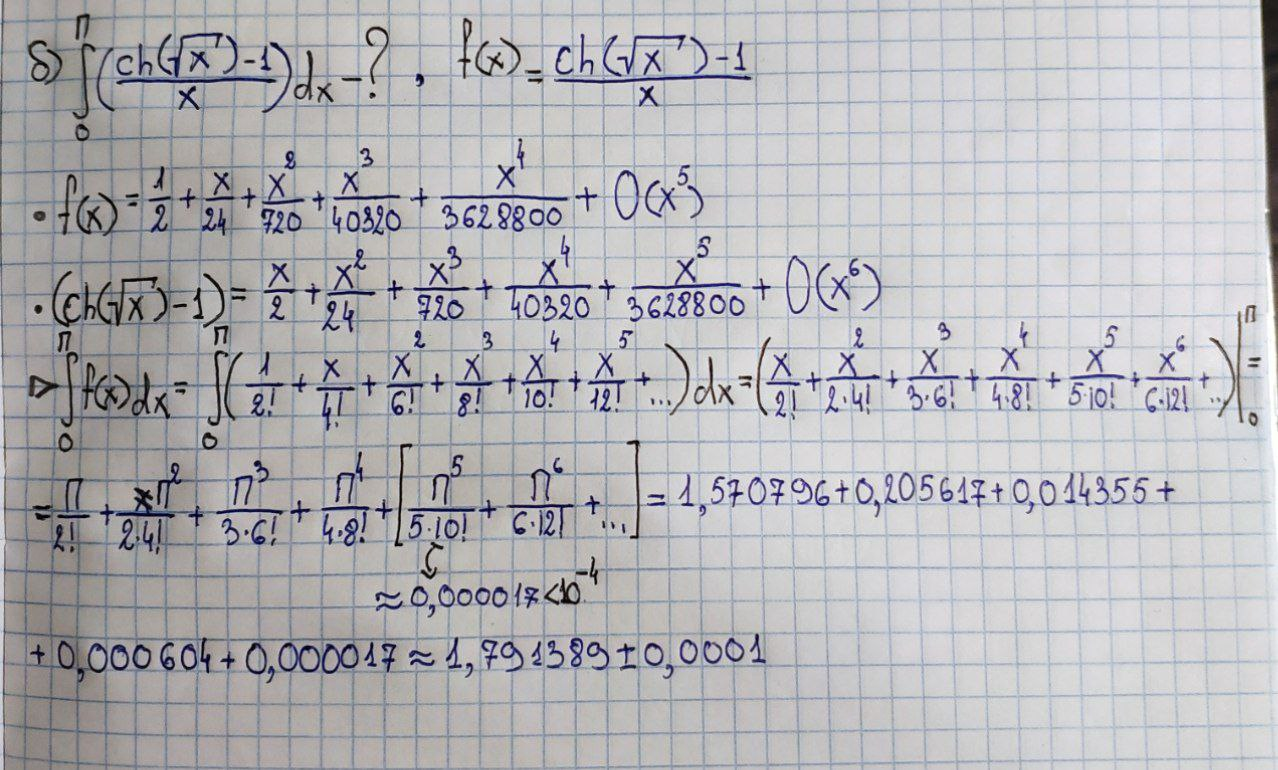 б) ∫₀^π ((ch(√x) - 1)/x) dx - ?, f(x) = (ch(√x) - 1)/x
• f(x) = 1/2 + x/24 + x²/720 + x³/40320 + x⁴/3628800 + O(x⁵)
• (ch(√x) - 1) = x/2 + x²/24 + x³/720 + x⁴/40320 + x⁵/3628800 + O(x⁶)
▷ ∫₀^π f(x) dx = ∫₀^π (1/2! + x/4! + x²/6! + x³/8! + x⁴/10! + x⁵/12! + ...) dx = (x/2! + x²/(2·4!) + x³/(3·6!) + x⁴/(4·8!) + x⁵/(5·10!) + x⁶/(6·12!) + ...)|₀^π =
= π/2! + π²/(2·4!) + π³/(3·6!) + π⁴/(4·8!) + [π⁵/(5·10!) + π⁶/(6·12!) + ...] = 1,570796 + 0,205617 + 0,014355 +
≈ 0,000017 < 10⁻⁴
+ 0,000604 + 0,000017 ≈ 1,791389 ± 0,0001